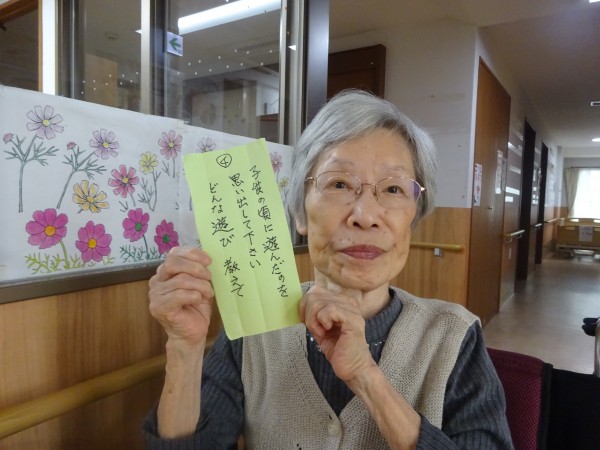 ④
子供の頃に遊んだのを
思い出して下さい
どんな遊び 教えて